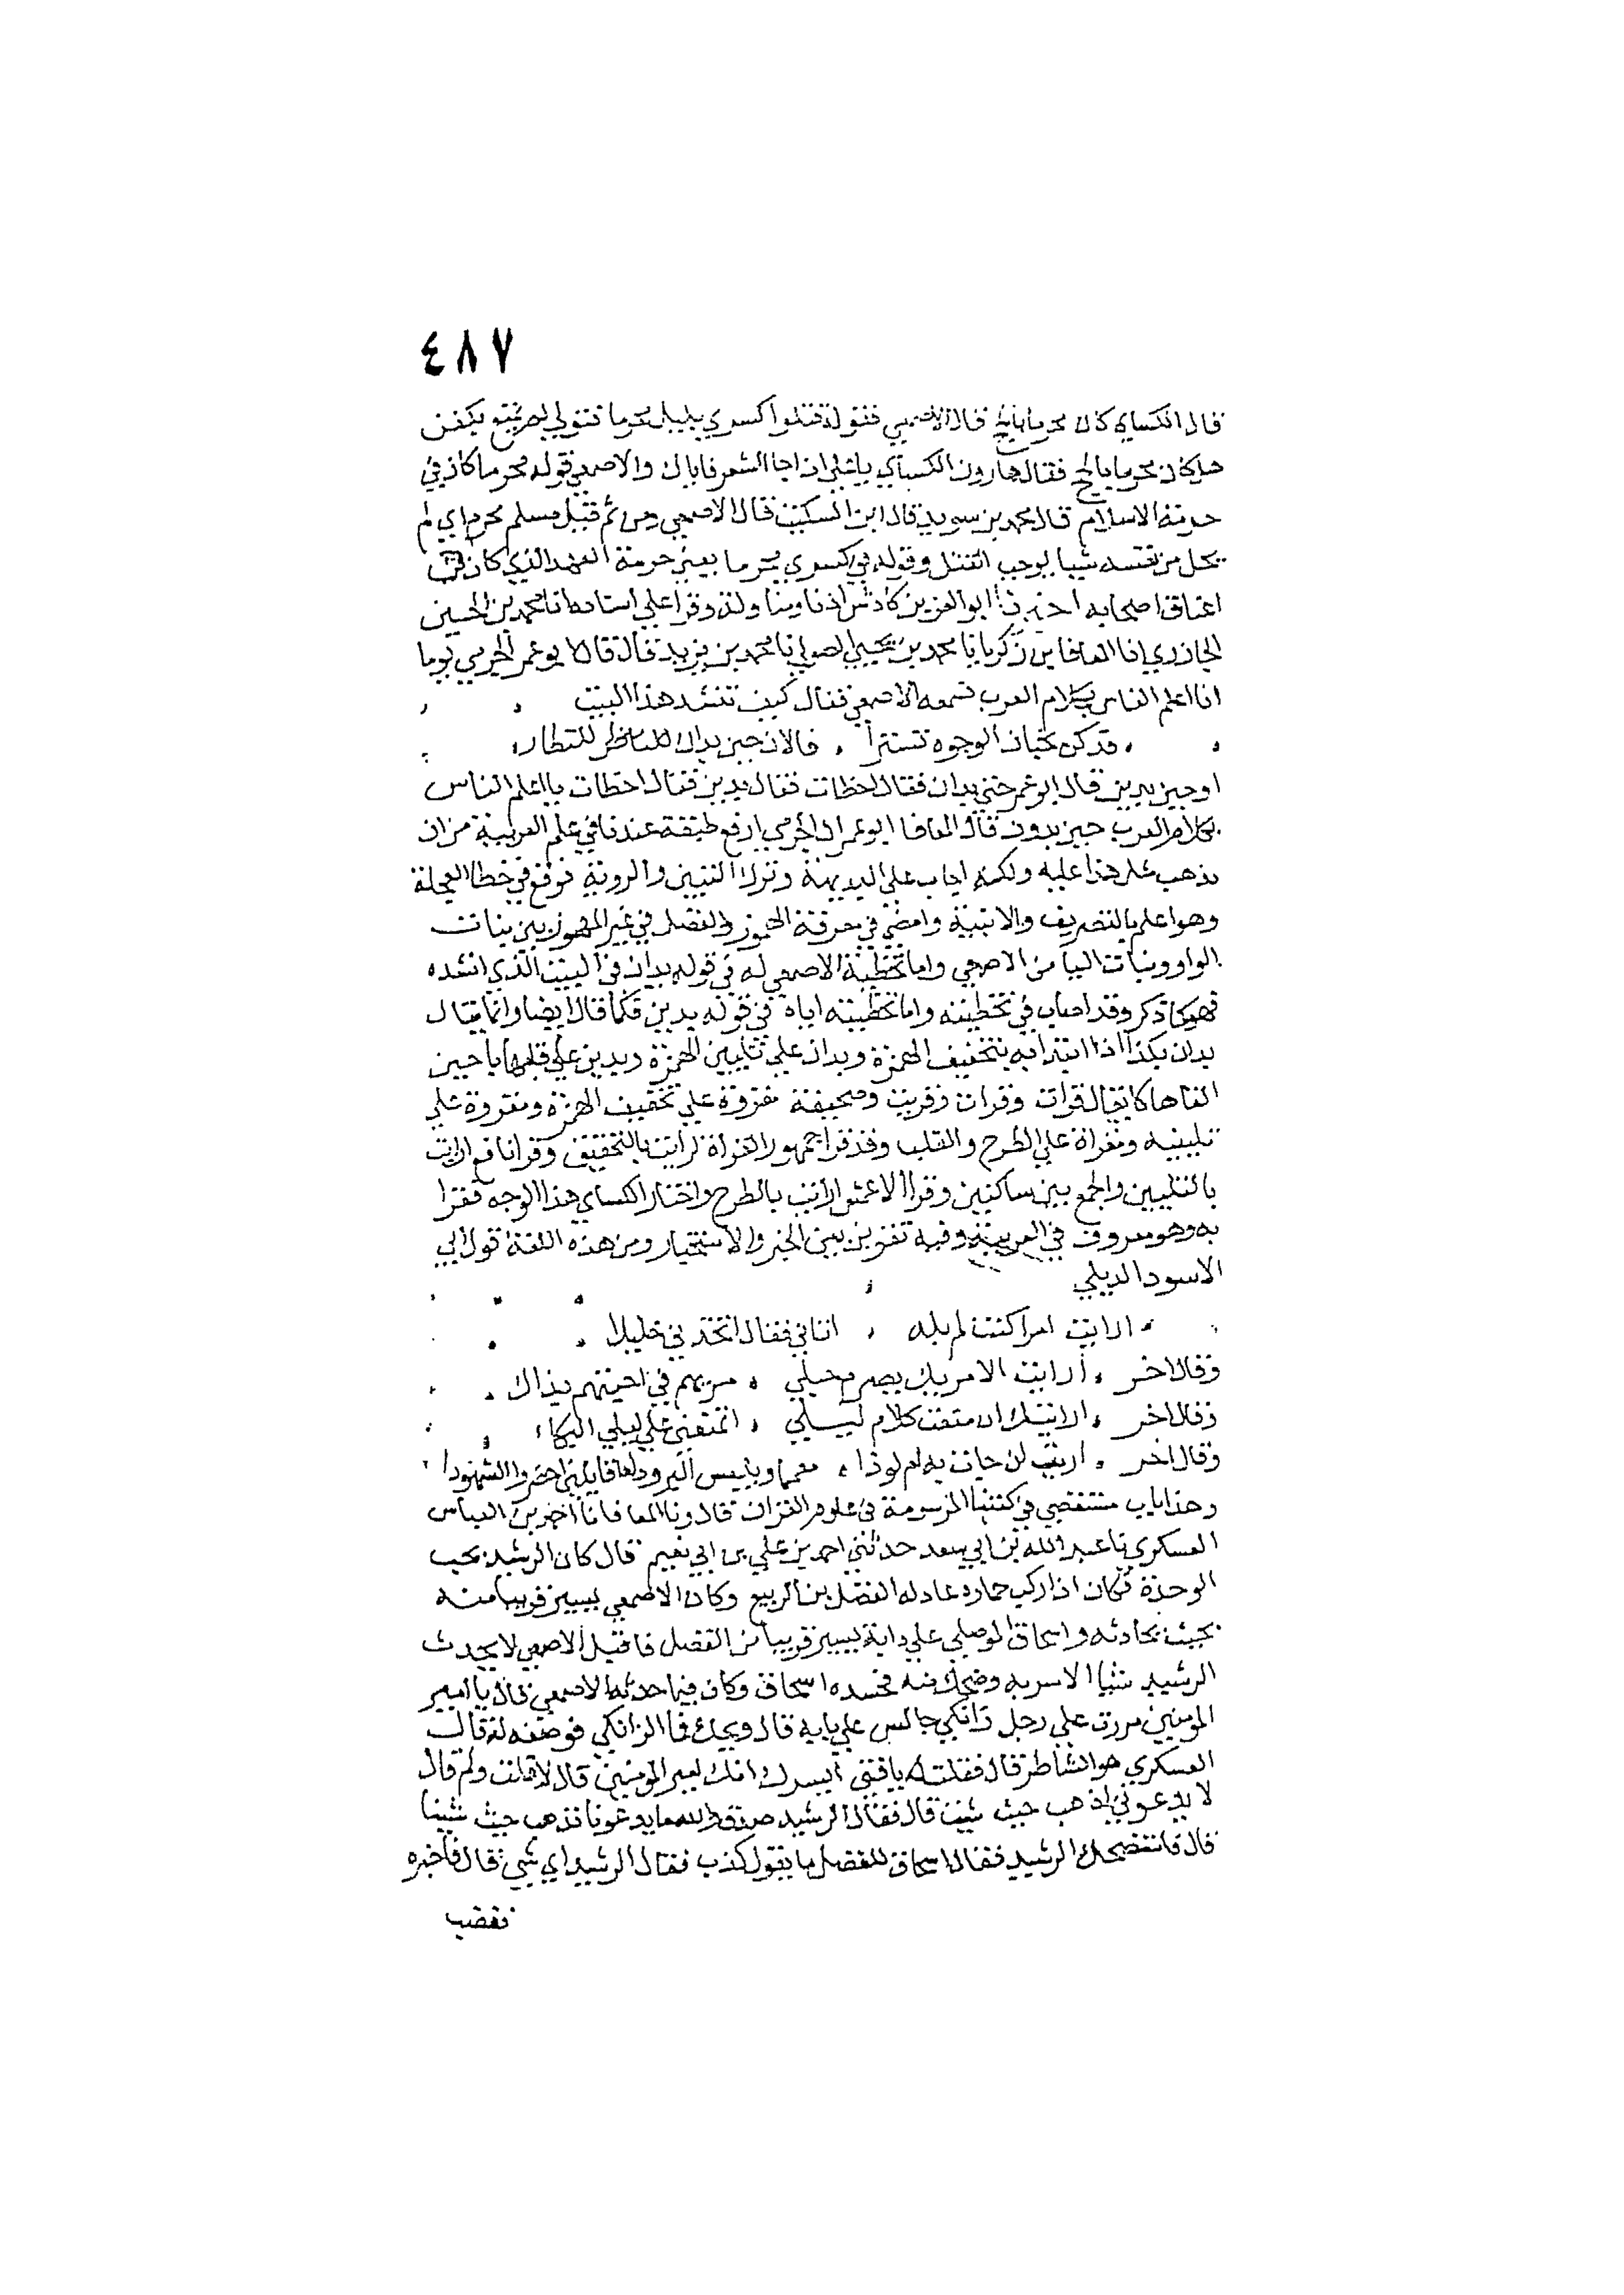 ٤٨٧
قال الكساي كان محرما بالحج قال الاصمعي فقوله قتلوا كسري بليل محرما فتولي لم يمتع بكفن
هل كان محرما بالحج فقال هارون للكساي يا علي اذا جا الشعر فاياك والاصمعي قوله محرما كان في
حرمة الاسلام قال محمد بن سويد قال ابن السكيت قال الاصمعي ومن ثم قيل مسلم محرم اي لم
يحل من نفسه شيا يوجب القتل وقوله في كسري محرما يعني حرمة العهد الذي كان في
اعناق اصحابه اخبرنا ابو العز بن كادش اذنا ومناولة وقرا علي اسناده انا محمد بن الحسين
الجازري انا المعافا بن زكريا نا محمد بن يحيي الصولي نا محمد بن يزيد قال قال ابو عمر الجرمي يوما
انا اعلم الناس بكلام العرب فسمعه الاصمعي فقال كيف تنشد هذا البيت
قد كن يخبان الوجوه تسترا فالان حين بدان للنظار
او حين بدين قال ابو عمر حين بدان فقال اخطات فقال بدين فقال اخطات يا اعلم الناس
بكلام العرب حين بدون قال المعافا ابو عمر الجرمي ارفع طبقة عندنا في علم العربية من ان
يذهب مثل هذا عليه ولكنه اجاب علي البديهة وترك التبين والروية فوقع في خطا العجلة
وهو اعلم بالتصريف والابنية وامضي في معرفة الهموز والفصل في غير المهموز بين بنات
الواو وبنات اليا من الاصمعي واما تخطية الاصمعي له في قوله بدان في البيت الذي انشده
فهو كما ذكر وقد اصاب في تخطيته واما تخطيته اياه في قوله بدين فكما قال ايضا وانما يقال
بدان بكذا اذا ابتدا به بتخفيف الهمزة وبدان علي تليين الهمزة وبدين علي قلبها يا حين
القاها كما يقال قرات وقرات وقريت وصحيفة مقروة علي تخفيف الهمزة ومقروة علي
تليينه ومقراة علي الطرح والقلب وقد قرا جمهور القراة ارايت بالتحقيق وقرا نافع ارايت
بالتليين والجمع بين ساكنين وقرا الاعمش ارايت بالطرح واختار الكساي هذا الوجه فقرا
به وهو معروف في العربية وفيه تفريق بين الخبر والاستخبار ومن هذه اللغة قول ابي
الاسود الديلي
ارايت امرا كنت لم ابله اتاني فقال اتخذني خليلا
وقال اخر ارايت الامريك بصرم حبلي مريهم في احبتهم بذاك
وقال اخر ارايتك ان منعت كلام ليلي اتمنعني علي ليلي البكاء
وقال اخر اريت ان جات به املودا معمما ويلبس البرودا اقايلن احضروا الشهودا
وهذا باب مستقصي في كتبنا المرسومة في علوم القران قال ونا المعافا نا احمد بن العباس
العسكري نا عبد الله بن ابي سعد حدثني احمد بن علي بن ابي نعيم قال كان الرشيد يحب
الوحدة فكان اذا ركب حماره عادله الفضل بن الربيع وكان الاصمعي يسير قريبا منه
بحيث يحادثه واسحاق الموصلي علي دابة يسير قريبا من الفضل فاقبل الاصمعي لا يحدث
الرشيد شيا الا سر به وضحك منه فحسده اسحاق وكان فيما حدثه الاصمعي قال يا امير
المومنين مررت علي رجل زانكي جالس علي بابه قال ويحك فما الزانكي فوصفه له قال
العسكري هو الشاطر قال فقلت له يا فتي ايسرك انك امير المومنين قال لا قلت ولم قال
لا يدعوني اذهب حيث شيت قال فقال الرشيد صدق والله ما يدعونا نذهب حيث شينا
قال فاستضحك الرشيد فقال اسحاق للفضل ما يقول كذب فقال الرشيد اي شي قال فاخبره
فغضب